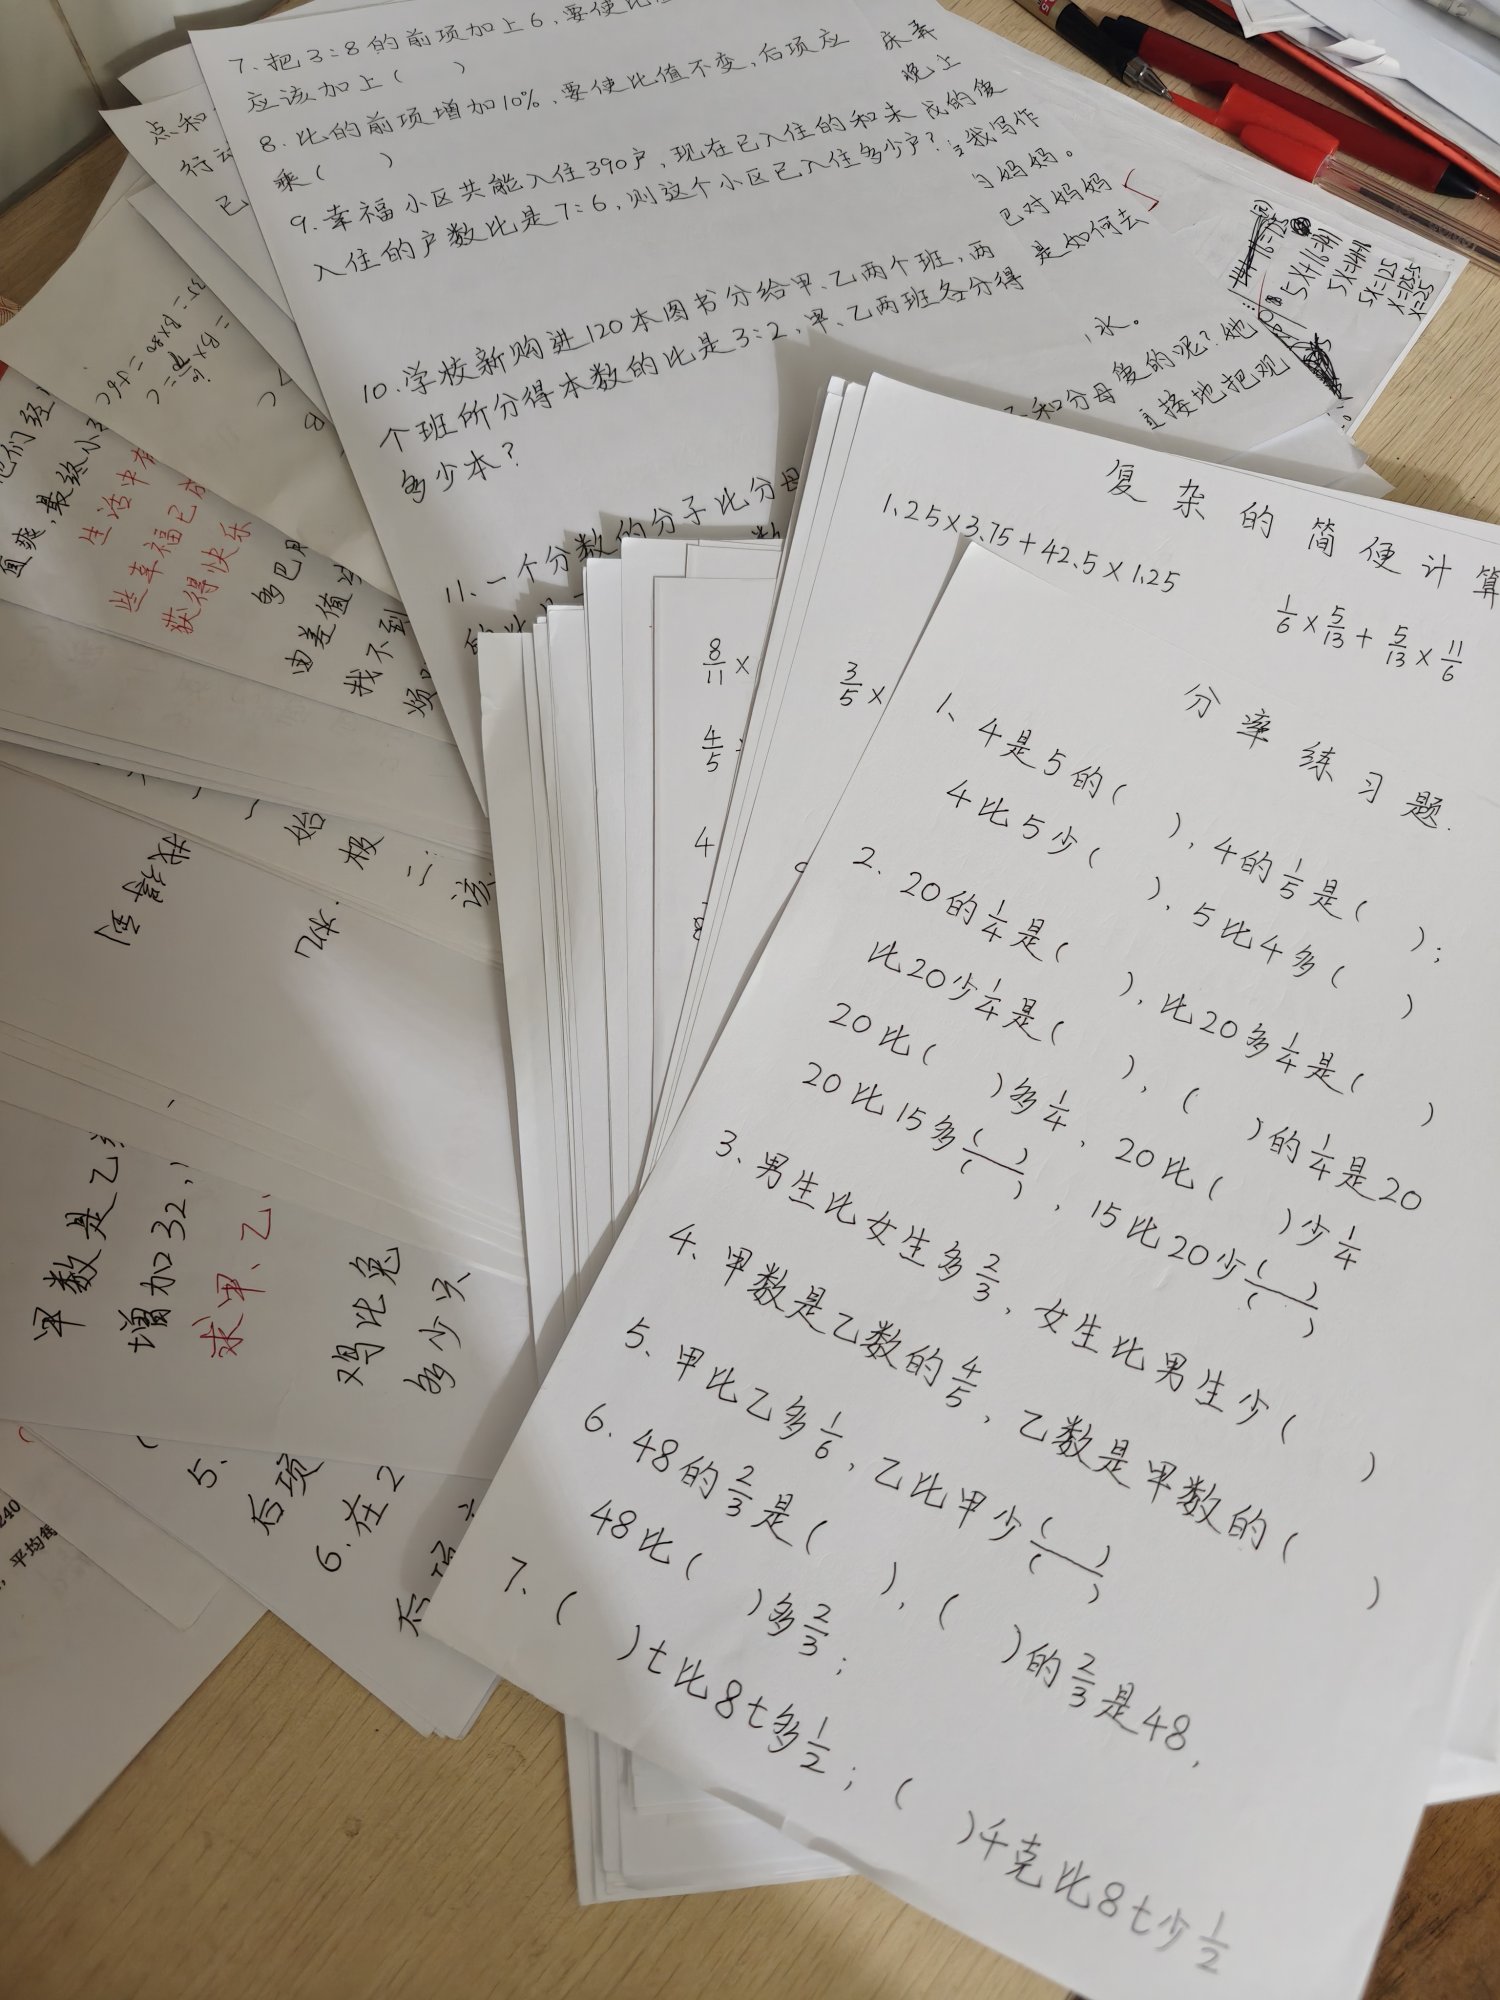 7.把3:8的前项加上6,要使比
应该加上( )
8.比的前项增加10%,要使比值不变,后项应
乘( )
9.幸福小区共能入住390户,现在已入住的和未
入住的户数比是7:6,则这个小区已入住多少户?
10.学校新购进120本图书分给甲、乙两个班,两
个班所分得本数的比是3:2,甲、乙两班各分得
多少本?
11.一个分数的分子比分母
晚上
成的傻
我写作
妈妈。
巴对妈妈
是如何去
水。
和分母傻的呢?她
直接地把观
5X+16=141
5X=125
X=25
复杂的简便计算
1.25×3.75+42.5×1.25
1/6×5/13+5/13×11/6
3/5×
8/11×
4/5
4
分率练习题.
1、4是5的( ),4的1/5是( );
4比5少( ),5比4多( )
2.20的1/4是( ),比20多1/4是( )
比20少1/4是( ),( )的1/4是20
20比( )多1/4,20比( )少1/4
20比15多( )/( ),15比20少( )/( )
3、男生比女生多2/3,女生比男生少( )
4、甲数是乙数的4/5,乙数是甲数的( )
5、甲比乙多1/6,乙比甲少( )/( )
6.48的2/3是( ),( )的2/3是48,
48比( )多2/3;
7、( )t比8t多1/2;( )千克比8t少1/2
点和
行动
已
他们经
直爽,最终小
生活中有
些幸福已
获得快乐
多巴
由差值
我不到
烦
始
极
二
该
我得到
机.
甲数是乙
增加32,
求甲、乙、
鸡比兔
多少只
5.
后项
6.在2
后项
240
,平均每